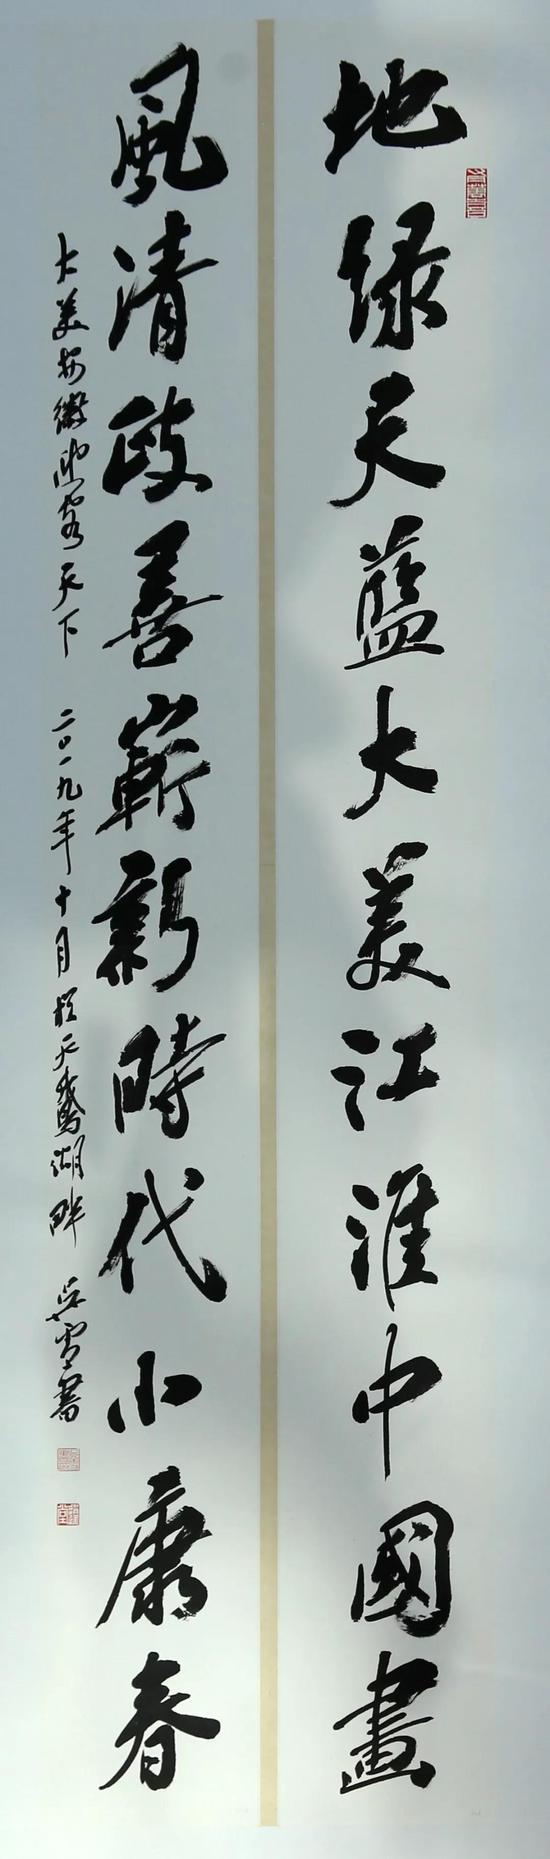 地绿天蓝大美江淮中國畫
風清政善嶄新時代小康春
大美安徽迎客天下 二〇一九年十月於天鹅湖畔 吴雪書